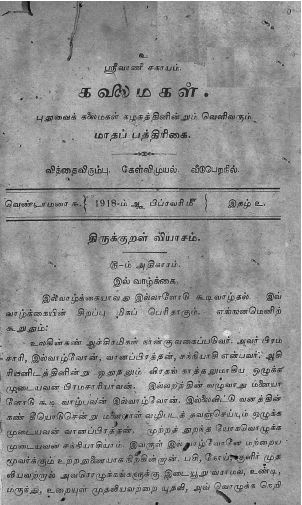 உ
ஸ்ரீவாணி சகாயம்.
கலைமகள்.
புதுவைக் கலைமகள் கழகத்தினின்றும் வெளிவரும்
மாதப் பத்திரிகை.
வித்தைவிரும்பு. கேள்வியுயல். வீடுபெறநில்.
வெண்டாமரை ௬. 1918-ம் ௵ பிப்ரவரி௴ இதழ் ௨.
திருக்குறள் வியாசம்.
௫-ம் அதிகாரம்.
இல் வாழ்க்கை.
இல்வாழ்க்கையாவது இல்லாளோடு கூடிவாழ்தல். இவ்
வாழ்க்கையின் சிறப்பு மிகப் பெரிதாகும். எங்ஙனமெனிற்
கூறுதும்:
உலகின்கண் ஆச்சிரமிகள் நான்கு வகைப்படுவர். அவர் பிரம
சாரி, இல்வாழ்வோன், வானப்பிரத்தன், சந்நியாசி என்பவர். ஆதி
ரியனிடத்தினின்று ஓதுதலும் விரதங் காத்தலுமாகிய ஒழுக்க
முடையவன் பிரமசாரியாவன். இல்லறத்தின் வழுவாது மனையா
ளோடு கூடி வாழ்பவன் இல்வாழ்வோன். இல்லைவிட்டு வனத்தின்
கண் தீயொடுசென்று மனையாள் வழிபடத் தவஞ்செய்யும் ஒழுக்க
முடையவன் வானப்பிரத்தன். முற்றத் துறந்த யோகவொழுக்க
முடையவன் சந்நியாசியாம். இவருள் இல்வாழ்வோனே மற்றைய
மூவர்க்கும் உற்றதுணையாக நிற்கின்றான். பசி, நோய், குளிர் முத
லியவற்றால் அவரொழுக்கங்களுக்கு இடையூறு வாராமல், உண்டி,
மருந்து, உறையுள் முதலியவற்றை யுதவி, அவ் வொழுக்க நெறி